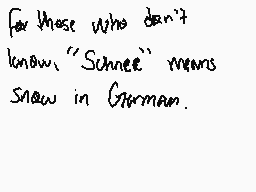 For those who don't
know, "Schnee" means
snow in German.